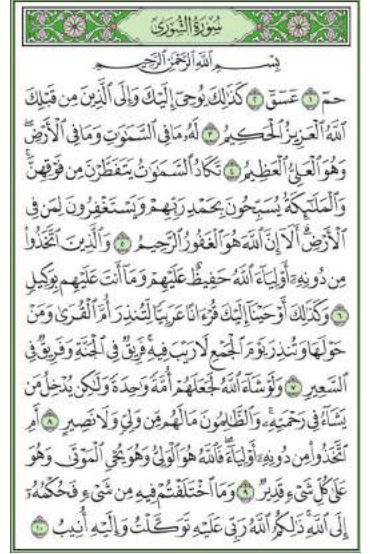 سُورَةُ الشُّورَىٰ
بِسْمِ اللَّهِ الرَّحْمَٰنِ الرَّحِيمِ
حمٓ ١ عٓسٓقٓ ٢ كَذَٰلِكَ يُوحِىٓ إِلَيْكَ وَإِلَى ٱلَّذِينَ مِن قَبْلِكَ
ٱللَّهُ ٱلْعَزِيزُ ٱلْحَكِيمُ ٣ لَهُۥ مَا فِى ٱلسَّمَٰوَٰتِ وَمَا فِى ٱلْأَرْضِ
وَهُوَ ٱلْعَلِىُّ ٱلْعَظِيمُ ٤ تَكَادُ ٱلسَّمَٰوَٰتُ يَتَفَطَّرْنَ مِن فَوْقِهِنَّ
وَٱلْمَلَٰٓئِكَةُ يُسَبِّحُونَ بِحَمْدِ رَبِّهِمْ وَيَسْتَغْفِرُونَ لِمَن فِى
ٱلْأَرْضِ أَلَآ إِنَّ ٱللَّهَ هُوَ ٱلْغَفُورُ ٱلرَّحِيمُ ٥ وَٱلَّذِينَ ٱتَّخَذُوا۟
مِن دُونِهِۦٓ أَوْلِيَآءَ ٱللَّهُ حَفِيظٌ عَلَيْهِمْ وَمَآ أَنتَ عَلَيْهِم بِوَكِيلٍ
٦ وَكَذَٰلِكَ أَوْحَيْنَآ إِلَيْكَ قُرْءَانًا عَرَبِيًّا لِّتُنذِرَ أُمَّ ٱلْقُرَىٰ وَمَنْ
حَوْلَهَا وَتُنذِرَ يَوْمَ ٱلْجَمْعِ لَا رَيْبَ فِيهِ فَرِيقٌ فِى ٱلْجَنَّةِ وَفَرِيقٌ فِى
ٱلسَّعِيرِ ٧ وَلَوْ شَآءَ ٱللَّهُ لَجَعَلَهُمْ أُمَّةً وَٰحِدَةً وَلَٰكِن يُدْخِلُ مَن
يَشَآءُ فِى رَحْمَتِهِۦ وَٱلظَّٰلِمُونَ مَا لَهُم مِّن وَلِىٍّ وَلَا نَصِيرٍ ٨ أَمِ
ٱتَّخَذُوا۟ مِن دُونِهِۦٓ أَوْلِيَآءَ فَٱللَّهُ هُوَ ٱلْوَلِىُّ وَهُوَ يُحْىِ ٱلْمَوْتَىٰ وَهُوَ
عَلَىٰ كُلِّ شَىْءٍ قَدِيرٌ ٩ وَمَا ٱخْتَلَفْتُمْ فِيهِ مِن شَىْءٍ فَحُكْمُهُۥٓ
إِلَى ٱللَّهِ ذَٰلِكُمُ ٱللَّهُ رَبِّى عَلَيْهِ تَوَكَّلْتُ وَإِلَيْهِ أُنِيبُ ١٠